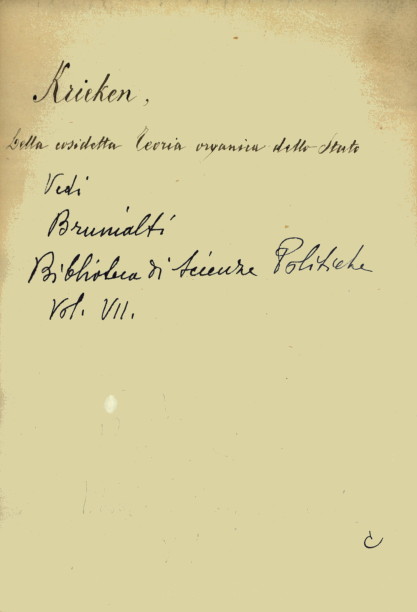 Krieken,
Della cosidetta Teoria organica dello Stato
Vedi
Brunialti
Biblioteca di Scienze Politiche
Vol. VII.